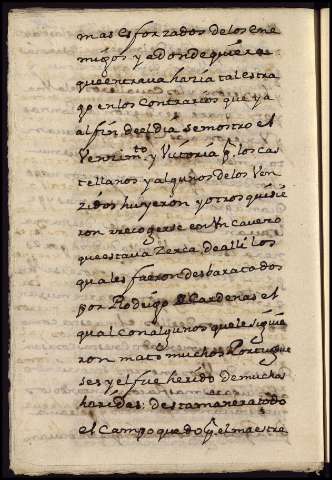 mas esforzados de los ene
migos y adonde quiera
que entrava hazia tal estra
go en los contrarios que ya
al fin del dia se mostro el
Venzim.to y Victoria p. los cas
tellanos y algunos de los Ven
zidos huyeron y otros quisie
ron rrecogerse en Vn cavero
que estava zerca de alli los
quales fueron desbaratados
por Rodrigo Cardenas el
qual con algunos que le siguie
ron mato muchos Portugue
ses y el fue herido de muchas
heridas: desta manera todo
el campo quedo p. el maestre